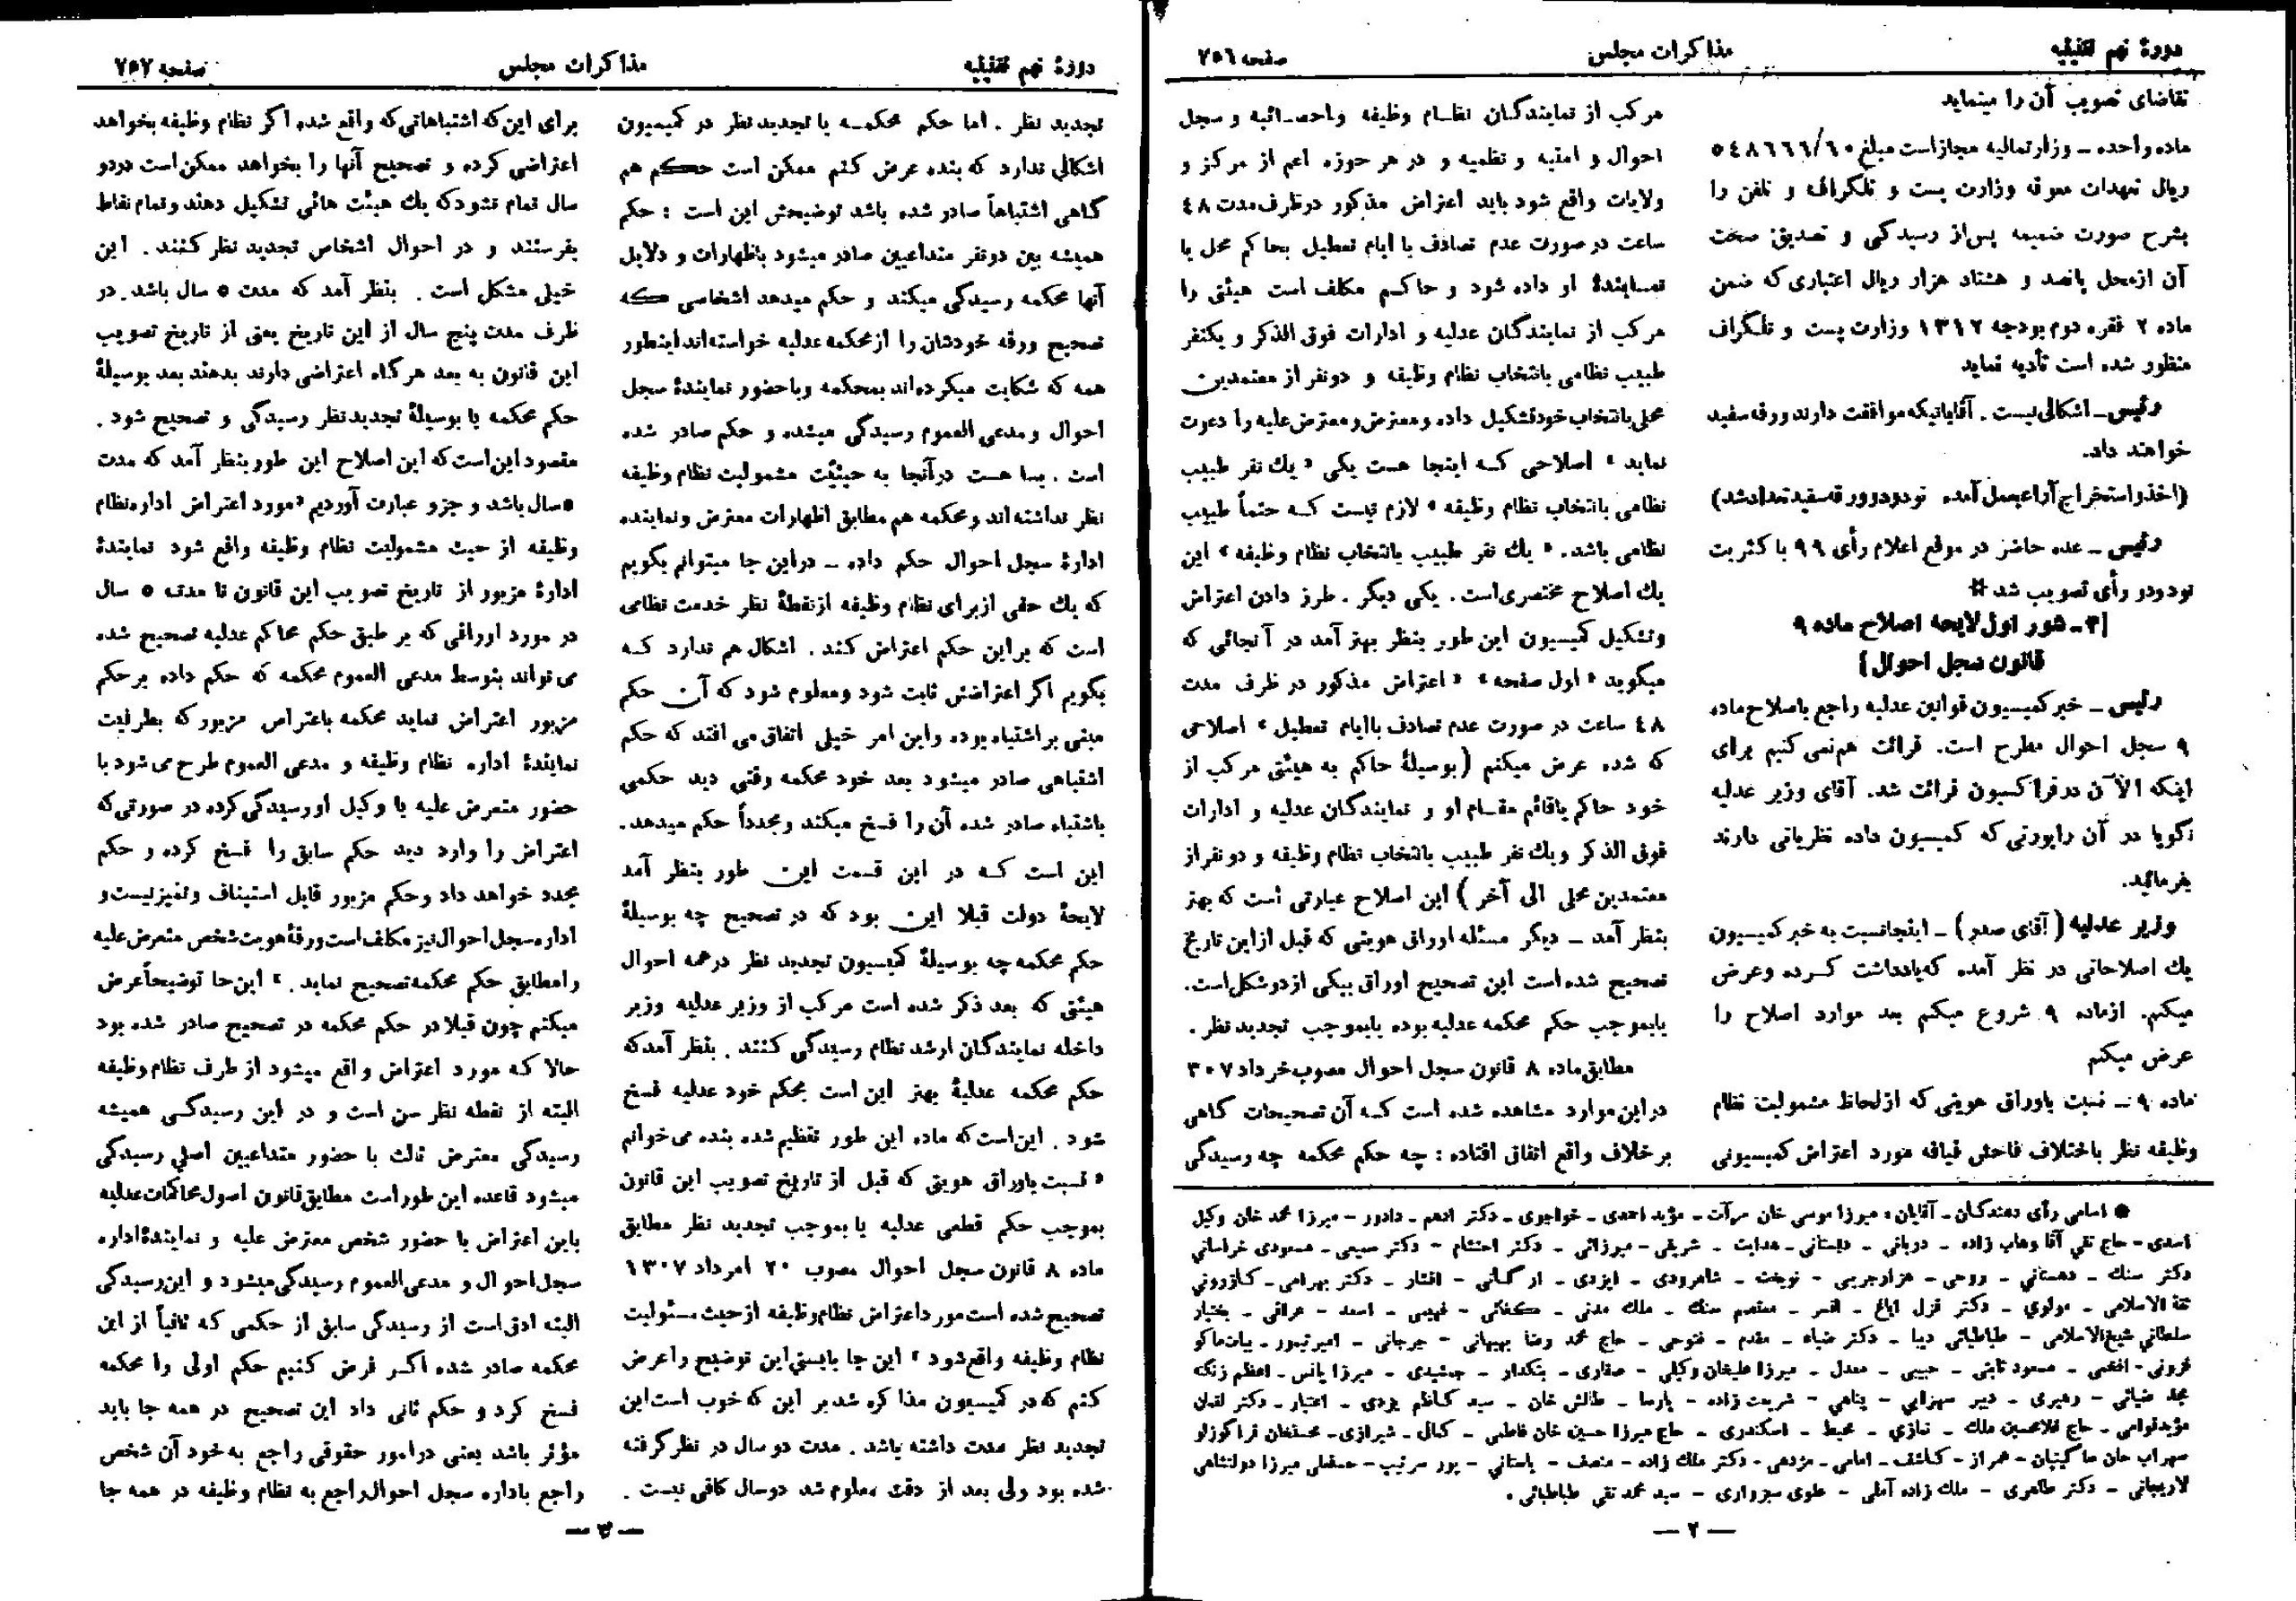 دورهٔ نهم تقنینیه
مذاکرات مجلس
صفحه ۷۵۶
تقاضای تصویب آن را مینماید
ماده واحده ـ وزارت مالیه مجاز است مبلغ ۵۴۸۶۶۶/۶۰
ریال تعهدات معوقه وزارت پست و تلگراف و تلفن را
بشرح صورت ضمیمه پس از رسیدگی و تصدیق صحت
آن از محل پانصد و هشتاد هزار ریال اعتباری که ضمن
ماده ۲ فقره دوم بودجه ۱۳۱۲ وزارت پست و تلگراف
منظور شده است تأدیه نماید
رئیس ـ اشکالی نیست . آقایانیکه موافقت دارند ورقه سفید
خواهند داد.
(اخذ و استخراج آراء بعمل آمده نود و دو ورقه سفید تعداد شد)
رئیس ـ عده حاضر در موقع اعلام رأی ۹۹ با کثریت
نود و دو رأی تصویب شد *
[۳ـ شور اول لایحه اصلاح ماده ۹
قانون سجل احوال]
رئیس ـ خبر کمیسیون قوانین عدلیه راجع باصلاح ماده
۹ سجل احوال مطرح است. قرائت هم نمی کنیم برای
اینکه الآن در فراکسیون قرائت شد. آقای وزیر عدلیه
گویا در آن راپورتی که کمیسیون داده نظریاتی دارند
بفرمائید.
وزیر عدلیه (آقای صدر) ـ اینجا نسبت به خبر کمیسیون
یك اصلاحاتی در نظر آمده که یادداشت کرده و عرض
میکنم. از ماده ۹ شروع میکنم بعد موارد اصلاح را
عرض میکنم
ماده ۹ ـ نسبت باوراق هویتی که از لحاظ مشمولیت نظام
وظیفه نظر باختلاف فاحش قیافه مورد اعتراض کمیسیونی
مرکب از نمایندگان نظام وظیفه و احصائیه و سجل
احوال و امنیه و نظمیه و در هر حوزه اعم از مرکز و
ولایات واقع شود باید اعتراض مذکور در ظرف مدت ۴۸
ساعت در صورت عدم تصادف با ایام تعطیل بحاکم محل یا
نمایندهٔ او داده شود و حاکم مکلف است هیئتی را
مرکب از نمایندگان عدلیه و ادارات فوق الذکر و یکنفر
طبیب نظامی بانتخاب نظام وظیفه و دو نفر از معتمدین
محلی بانتخاب خود تشکیل داده و معترض و معترض علیه را دعوت
نماید » اصلاحی که اینجا هست یکی « یك نفر طبیب
نظامی بانتخاب نظام وظیفه » لازم نیست که حتماً طبیب
نظامی باشد. « یك نفر طبیب بانتخاب نظام وظیفه » این
یك اصلاح مختصری است . یکی دیگر . طرز دادن اعتراض
و تشکیل کمیسیون این طور بنظر بهتر آمد در آنجائی که
میگوید « اول صفحه » « اعتراض مذکور در ظرف مدت
۴۸ ساعت در صورت عدم تصادف با ایام تعطیل » اصلاحی
که شده عرض میکنم (بوسیلهٔ حاکم به هیئتی مرکب از
خود حاکم یا قائم مقام او و نمایندگان عدلیه و ادارات
فوق الذکر و یك نفر طبیب بانتخاب نظام وظیفه و دو نفر از
معتمدین محلی الی آخر ) این اصلاح عبارتی است که بهتر
بنظر آمد ـ دیگر مسئله اوراق هویتی که قبل از این تاریخ
تصحیح شده است این تصحیح اوراق بیکی از دو شکل است.
یا بموجب حکم محکمه عدلیه بوده یا بموجب تجدید نظر .
مطابق ماده ۸ قانون سجل احوال مصوب خرداد ۳۰۷
در این موارد مشاهده شده است که آن تصحیحات گاهی
بر خلاف واقع اتفاق افتاده : چه حکم محکمه چه رسیدگی
● اسامی رأی دهندگان ـ آقایان : میرزا موسی خان مرآت ـ مؤید احمدی ـ خواجوی ـ دکتر ادهم ـ دادور ـ میرزا محمد خان وکیل
اسدی ـ حاج تقی آقا وهاب زاده ـ دربانی ـ دبستانی ـ هدایت ـ شریفی ـ میرزائی ـ دکتر احتشام ـ دکتر سمیعی ـ مسعودی خراسانی
دکتر سنك ـ دهستانی ـ روحی ـ هزارجریبی ـ نوبخت ـ شاهرودی ـ ایزدی ـ ارگانی ـ افشار ـ دکتر بهرامی ـ کازرونی
ثقة الاسلامی ـ مولوی ـ دکتر قزل ایاغ ـ افسر ـ معتصم سنك ـ ملك مدنی ـ کفائی ـ فهیمی ـ اسعد ـ عراقی ـ بختیار
سلطانی شیخ الاسلامی ـ طباطبائی دیبا ـ دکتر ضیاء ـ مقدم ـ فتوحی ـ حاج محمد رضا بهبهانی ـ جرجانی ـ امیر تیمور ـ بیات ماکو
قزونی ـ افخمی ـ مسعود ثابتی ـ حبیبی ـ معدل ـ میرزا علیخان وکیلی ـ صفاری ـ بنکدار ـ جمشیدی ـ میرزا یانس ـ اعظم زنگنه
مجد ضیائی ـ رهبری ـ دبیر سهرابی ـ پناهی ـ شریعت زاده ـ پارسا ـ طالش خان ـ سید کاظم یزدی ـ اعتبار ـ دکتر لقمان
مؤید قوامی ـ حاج غلامحسین ملك ـ نمازی ـ محیط ـ اسکندری ـ حاج میرزا حسین خان فاطمی ـ کمالی ـ شیرازی ـ محسنخان قراگوزلو
سهراب خان ساگینیان ـ همراز ـ کاشف ـ امامی ـ مژدهی ـ دکتر ملك زاده ـ منصف ـ یاسائی ـ پور سرتیپ ـ حسنقلی میرزا دولتشاهی
لاریجانی ـ دکتر طاهری ـ ملك زاده آملی ـ علوی سبزواری ـ سید محمد تقی طباطبائی .
— ۲ —
دورهٔ نهم تقنینیه
مذاکرات مجلس
صفحه ۷۵۷
تجدید نظر . اما حکم محکمه یا تجدید نظر در کمیسیون
اشکالی ندارد که بنده عرض کنم ممکن است حکم هم
گاهی اشتباهاً صادر شده باشد توضیحش این است : حکم
همیشه بین دو نفر متداعیین صادر میشود باظهارات و دلایل
آنها محکمه رسیدگی میکند و حکم میدهد اشخاصی که
تصحیح ورقه خودشان را از محکمه عدلیه خواسته اند اینطور
همه که شکایت میکرده اند بمحکمه و با حضور نمایندهٔ سجل
احوال و مدعی العموم رسیدگی میشده و حکم صادر شده
است . بسا هست در آنجا به حیثیت مشمولیت نظام وظیفه
نظر نداشته اند و محکمه هم مطابق اظهارات معترض و نماینده
ادارهٔ سجل احوال حکم داده ـ در این جا میتوانم بگویم
که یك حقی از برای نظام وظیفه از نقطهٔ نظر خدمت نظامی
است که بر این حکم اعتراض کند . اشکال هم ندارد که
بگویم اگر اعتراضش ثابت شود و معلوم شود که آن حکم
مبنی بر اشتباه بوده و این امر خیلی اتفاق می افتد که حکم
اشتباهی صادر میشود بعد خود محکمه وقتی دید حکمی
باشتباه صادر شده آن را فسخ میکند و مجدداً حکم میدهد.
این است که در این قسمت این طور بنظر آمد
لایحهٔ دولت قبلا این بود که در تصحیح چه بوسیلهٔ
حکم محکمه چه بوسیلهٔ کمیسیون تجدید نظر در همه احوال
هیئتی که بعد ذکر شده است مرکب از وزیر عدلیه وزیر
داخله نمایندگان ارشد نظام رسیدگی کنند . بنظر آمد که
حکم محکمه عدلیهٔ بهتر این است بحکم خود عدلیه فسخ
شود . این است که ماده این طور تنظیم شده بنده می خوانم
« نسبت باوراق هویتی که قبل از تاریخ تصویب این قانون
بموجب حکم قطعی عدلیه یا بموجب تجدید نظر مطابق
ماده ۸ قانون سجل احوال مصوب ۲۰ امرداد ۱۳۰۷
تصحیح شده است مورد اعتراض نظام وظیفه از حیث مسئولیت
نظام وظیفه واقع شود » این جا بایستی این توضیح را عرض
کنم که در کمیسیون مذاکره شد بر این که خوب است این
تجدید نظر مدت داشته باشد . مدت دو سال در نظر گرفته
شده بود ولی بعد از دقت معلوم شد دو سال کافی نیست .
برای این که اشتباهاتی که واقع شده اگر نظام وظیفه بخواهد
اعتراضی کرده و تصحیح آنها را بخواهد ممکن است در دو
سال تمام نشود که یك هیئت هائی تشکیل دهند و تمام نقاط
بفرستند و در احوال اشخاص تجدید نظر کنند . این
خیلی مشکل است . بنظر آمد که مدت ۵ سال باشد . در
ظرف مدت پنج سال از این تاریخ یعنی از تاریخ تصویب
این قانون به بعد هر گاه اعتراضی دارند بدهند بعد بوسیلهٔ
حکم محکمه یا بوسیلهٔ تجدید نظر رسیدگی و تصحیح شود .
مقصود این است که این اصلاح این طور بنظر آمد که مدت
۵ سال باشد و جزو عبارت آوردیم « مورد اعتراض اداره نظام
وظیفه از حیث مشمولیت نظام وظیفه واقع شود نمایندهٔ
ادارهٔ مزبور از تاریخ تصویب این قانون تا مدت ۵ سال
در مورد اوراقی که بر طبق حکم محاکم عدلیه تصحیح شده
می تواند بتوسط مدعی العموم محکمه که حکم داده بر حکم
مزبور اعتراض نماید محکمه باعتراض مزبور که بطرفیت
نمایندهٔ اداره نظام وظیفه و مدعی العموم طرح می شود با
حضور متعرض علیه یا وکیل او رسیدگی کرده در صورتی که
اعتراض را وارد دید حکم سابق را فسخ کرده و حکم
مجدد خواهد داد و حکم مزبور قابل استیناف و تمیز نیست و
اداره سجل احوال نیز مکلف است ورقهٔ هویت شخص متعرض علیه
را مطابق حکم محکمه تصحیح نماید . » این جا توضیحاً عرض
میکنم چون قبلا در حکم محکمه در تصحیح صادر شده بود
حالا که مورد اعتراض واقع میشود از طرف نظام وظیفه
البته از نقطه نظر سن است و در این رسیدگی همیشه
رسیدگی معترض ثالث با حضور متداعیین اصلی رسیدگی
میشود قاعده این طور است مطابق قانون اصول محاکمات عدلیه
باین اعتراض با حضور شخص معترض علیه و نمایندهٔ اداره
سجل احوال و مدعی العموم رسیدگی میشود و این رسیدگی
البته ادق است از رسیدگی سابق از حکمی که ثانیاً از این
محکمه صادر شده اگر فرض کنیم حکم اولی را محکمه
فسخ کرد و حکم ثانی داد این تصحیح در همه جا باید
مؤثر باشد یعنی در امور حقوقی راجع به خود آن شخص
راجع باداره سجل احوال راجع به نظام وظیفه در همه جا
— ۳ —